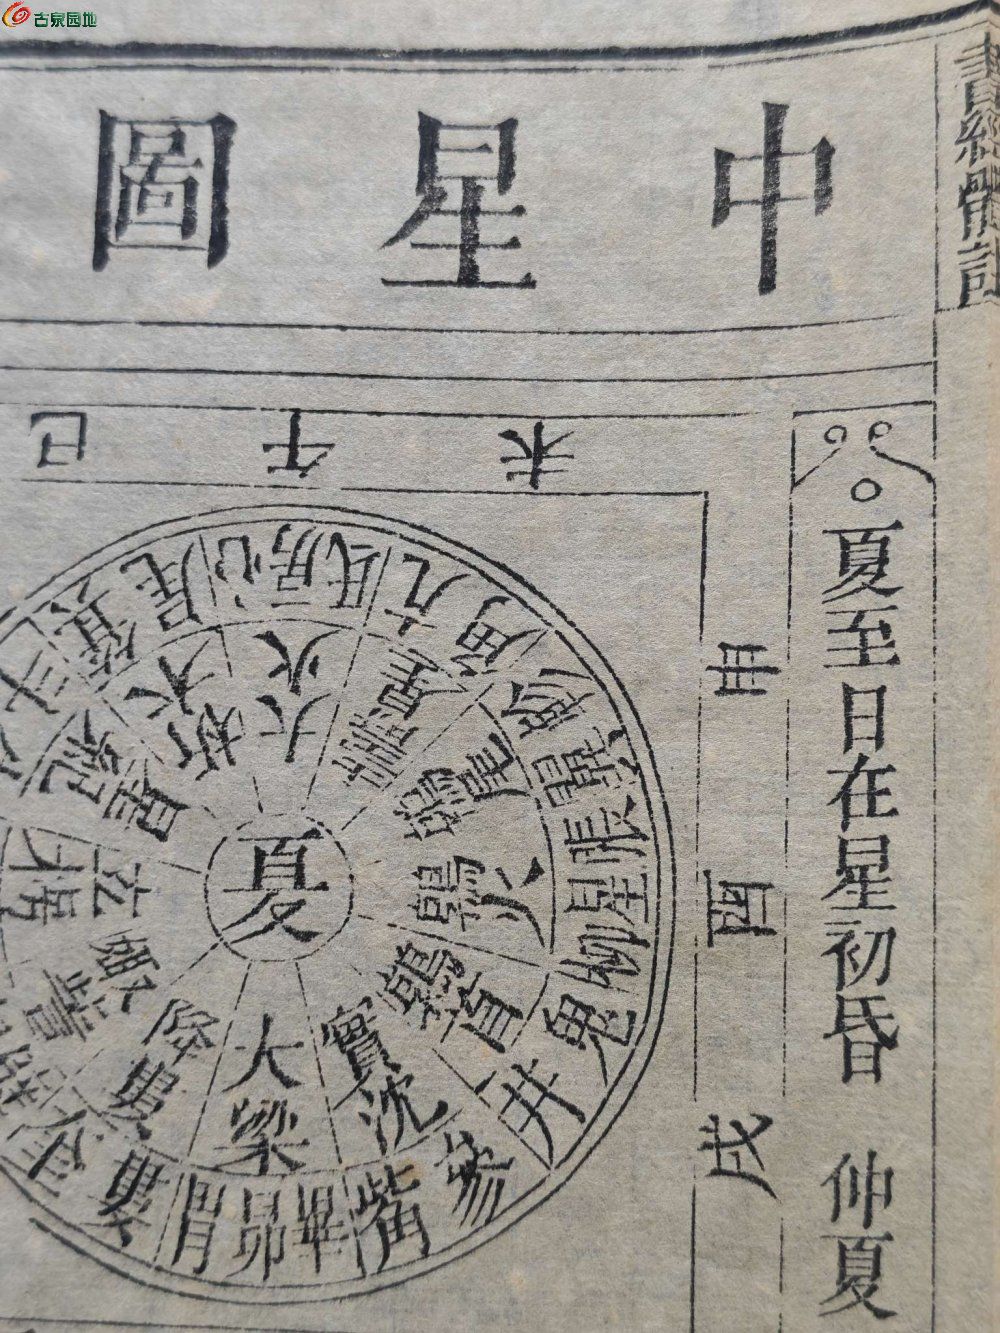 古泉园地
書經體註
中星圖
夏至日在星初昏 仲夏
巳 午 未
申
酉
戌
夏
大火
壽星
鶉尾
鶉火
鶉首
實沈
大梁
降婁
娵訾
玄枵
星紀
析木
尾 心 房 氐 亢 角 軫 翼 張 星 柳 鬼 井 參 觜 畢 昴 胃 婁 奎
箕
斗